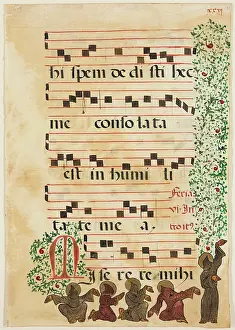 hi spem de di sti hec
me conso la ta
est in humi li
feria
vi. In
troit9
ta te me a.
Mi se re re mihi